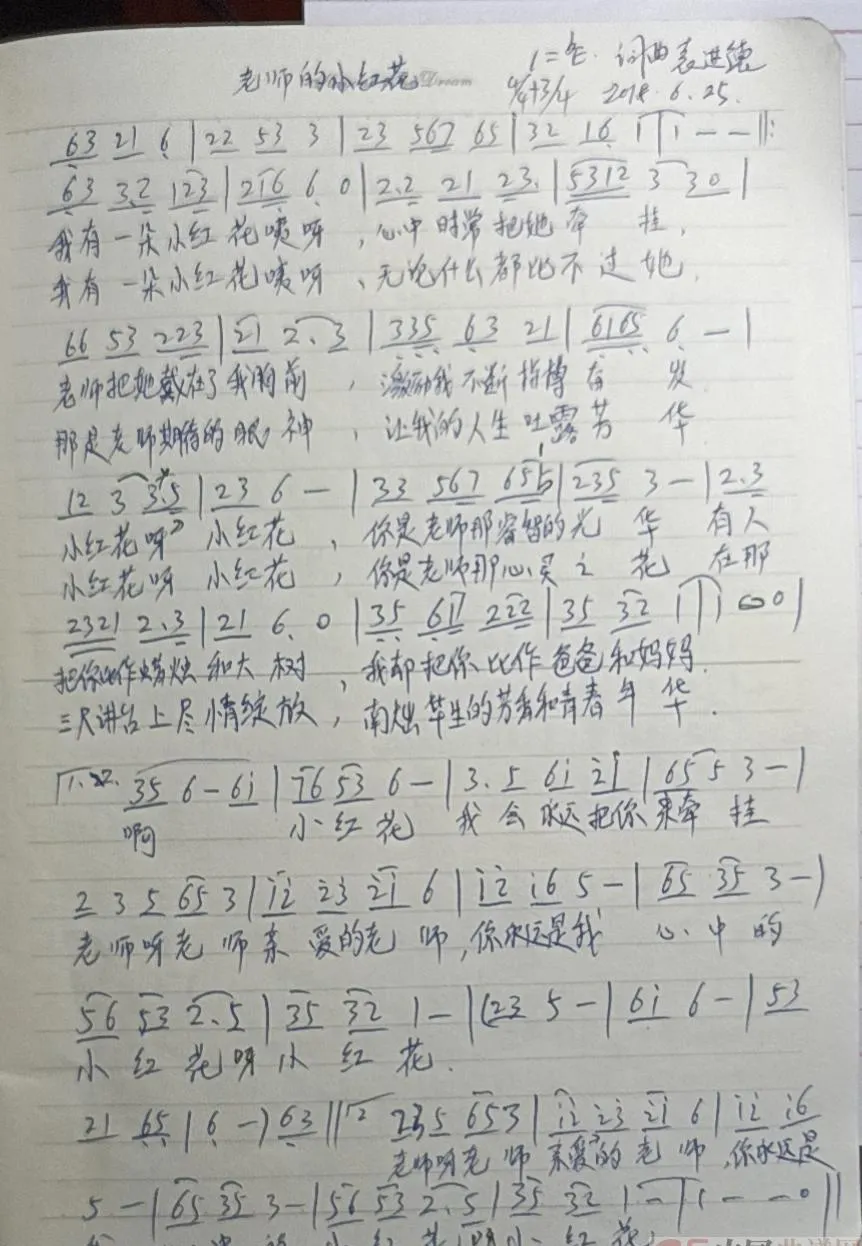 老师的小红花 Dream
1=bE 词曲袁进德
4/4+3/4 2018.6.25.
63 21 6 | 22 53 3 | 23 567 65 | 32 16 1 | 1 - - ‖:
63 3.2 123 | 216 6 0 | 2.2 21 23. | 5312 3 30 |
我有一朵小红花咦呀,心中时常把她牵挂,
我有一朵小红花咦呀、无论什么都比不过她.
66 53 223 | 21 2. 3 | 335 63 21 | 6165 6. - |
老师把她戴在了我胸前,激励我不断指博奋发
那是老师期待的眼神,让我的人生吐露芳华
12 3 3.5 | 23 6 - | 33 567 655 | 235 3 - | 2.3
小红花呀 小红花,你是老师那睿智的光华 有人
小红花呀 小红花,你是老师那心灵之花 在那
2321 2.3 | 21 6. 0 | 35 61 222 | 35 32 1 | 1 00 |
把你比作蜡烛和大树,我却把你比作爸爸和妈妈.
三尺讲台上尽情绽放,毕生的芳香和青春年华.
1. 35 6 - 6i | i6 53 6 - | 3. 5 6i 2i | 65 5 3 - |
啊 小红花 我会永远把你来牵挂
2 3 5 65 3 | i2 i3 2i 6 | i2 i6 5 - | 65 35 3 - |
老师呀老师亲爱的老师,你永远是我心中的
56 53 2.5 | 35 32 1 - | (23 5 - | 6i 6 - | 53
小红花呀小红花.
21 65 | 6 -) 63 ‖ 2 23 5 653 | i2 i3 2i 6 | i2 i6
老师呀老师亲爱的老师,你永远是
5 - | 65 35 3 - | 56 53 2. 5 | 35 32 1 - | 1 - - 0 ‖